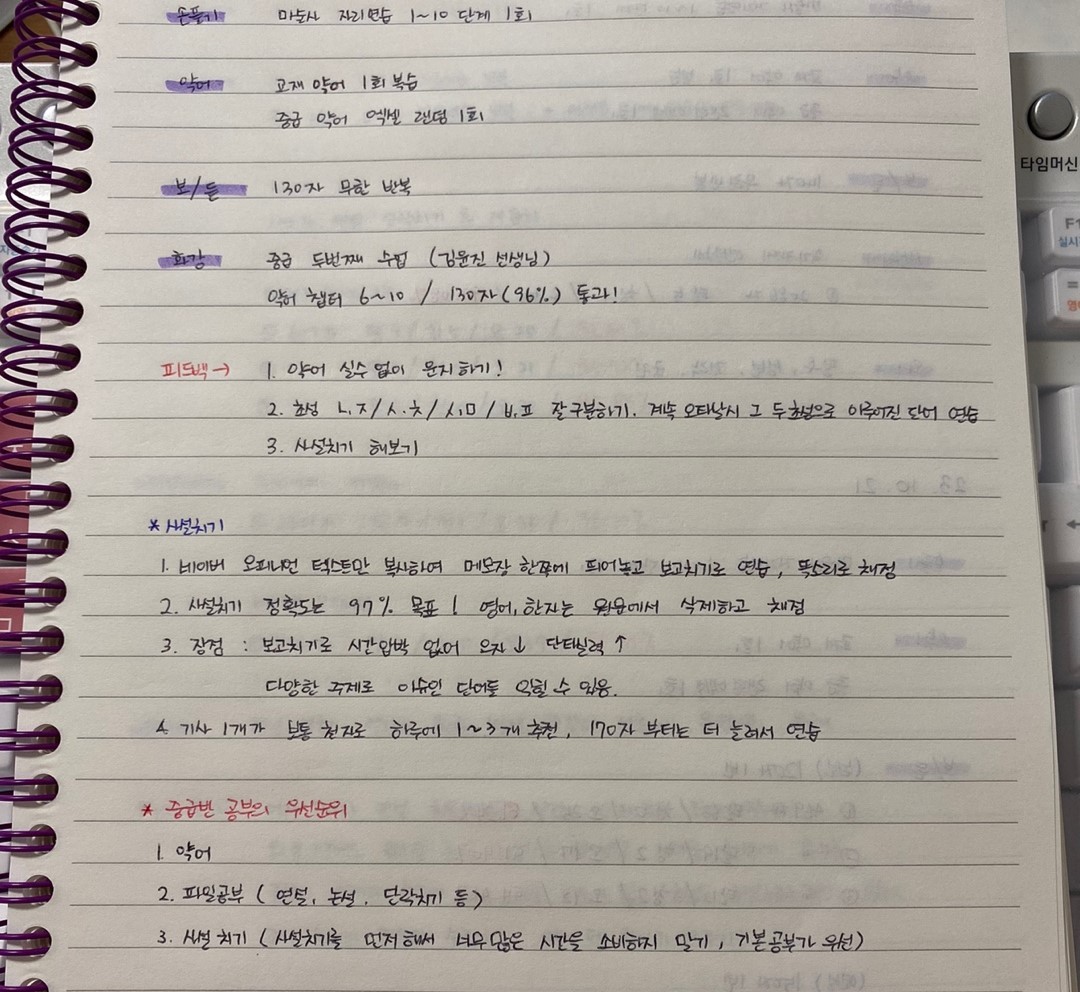 손풀기 마눈사 자리연습 1~10 단계 1회
약어 교재 약어 1회 복습
중급 약어 엑셀 랜덤 1회
보/듣 130자 무한 반복
화강 중급 두번째 수업 (김윤진 선생님)
약어 챕터 6~10 / 130자 (96%) 통과!
피드백→ 1. 약어 실수 없이 문지하기!
2. 초성 ㄴ,ㅈ/ㅅ,ㅊ/ㅅ,ㅁ/ㅂ,ㅍ 잘 구분하기. 계속 오타날시 그 두 초성으로 이루어진 단어 연습
3. 사설치기 해보기
* 사설치기
1. 네이버 오피니언 텍스트만 복사하여 메모장 한쪽에 띄어놓고 보고치기로 연습, 똑소리로 채점
2. 사설치기 정확도는 97% 목표! 영어, 한자는 원문에서 삭제하고 채점
3. 장점 : 보고치기로 시간압박 없어 오자↓ 단타실력↑
다양한 주제로 이슈인 단어들 익힐 수 있음.
4. 기사 1개가 보통 천자로 하루에 1~3개 추천, 170자 부터는 더 늘려서 연습
* 중급반 공부의 우선순위
1. 약어
2. 파일공부 (연설, 논설, 단락치기 등)
3. 사설 치기 (사설치기를 먼저해서 너무 많은 시간을 소비하지 말기, 기본공부가 우선)
타임머신
F1
실시
=